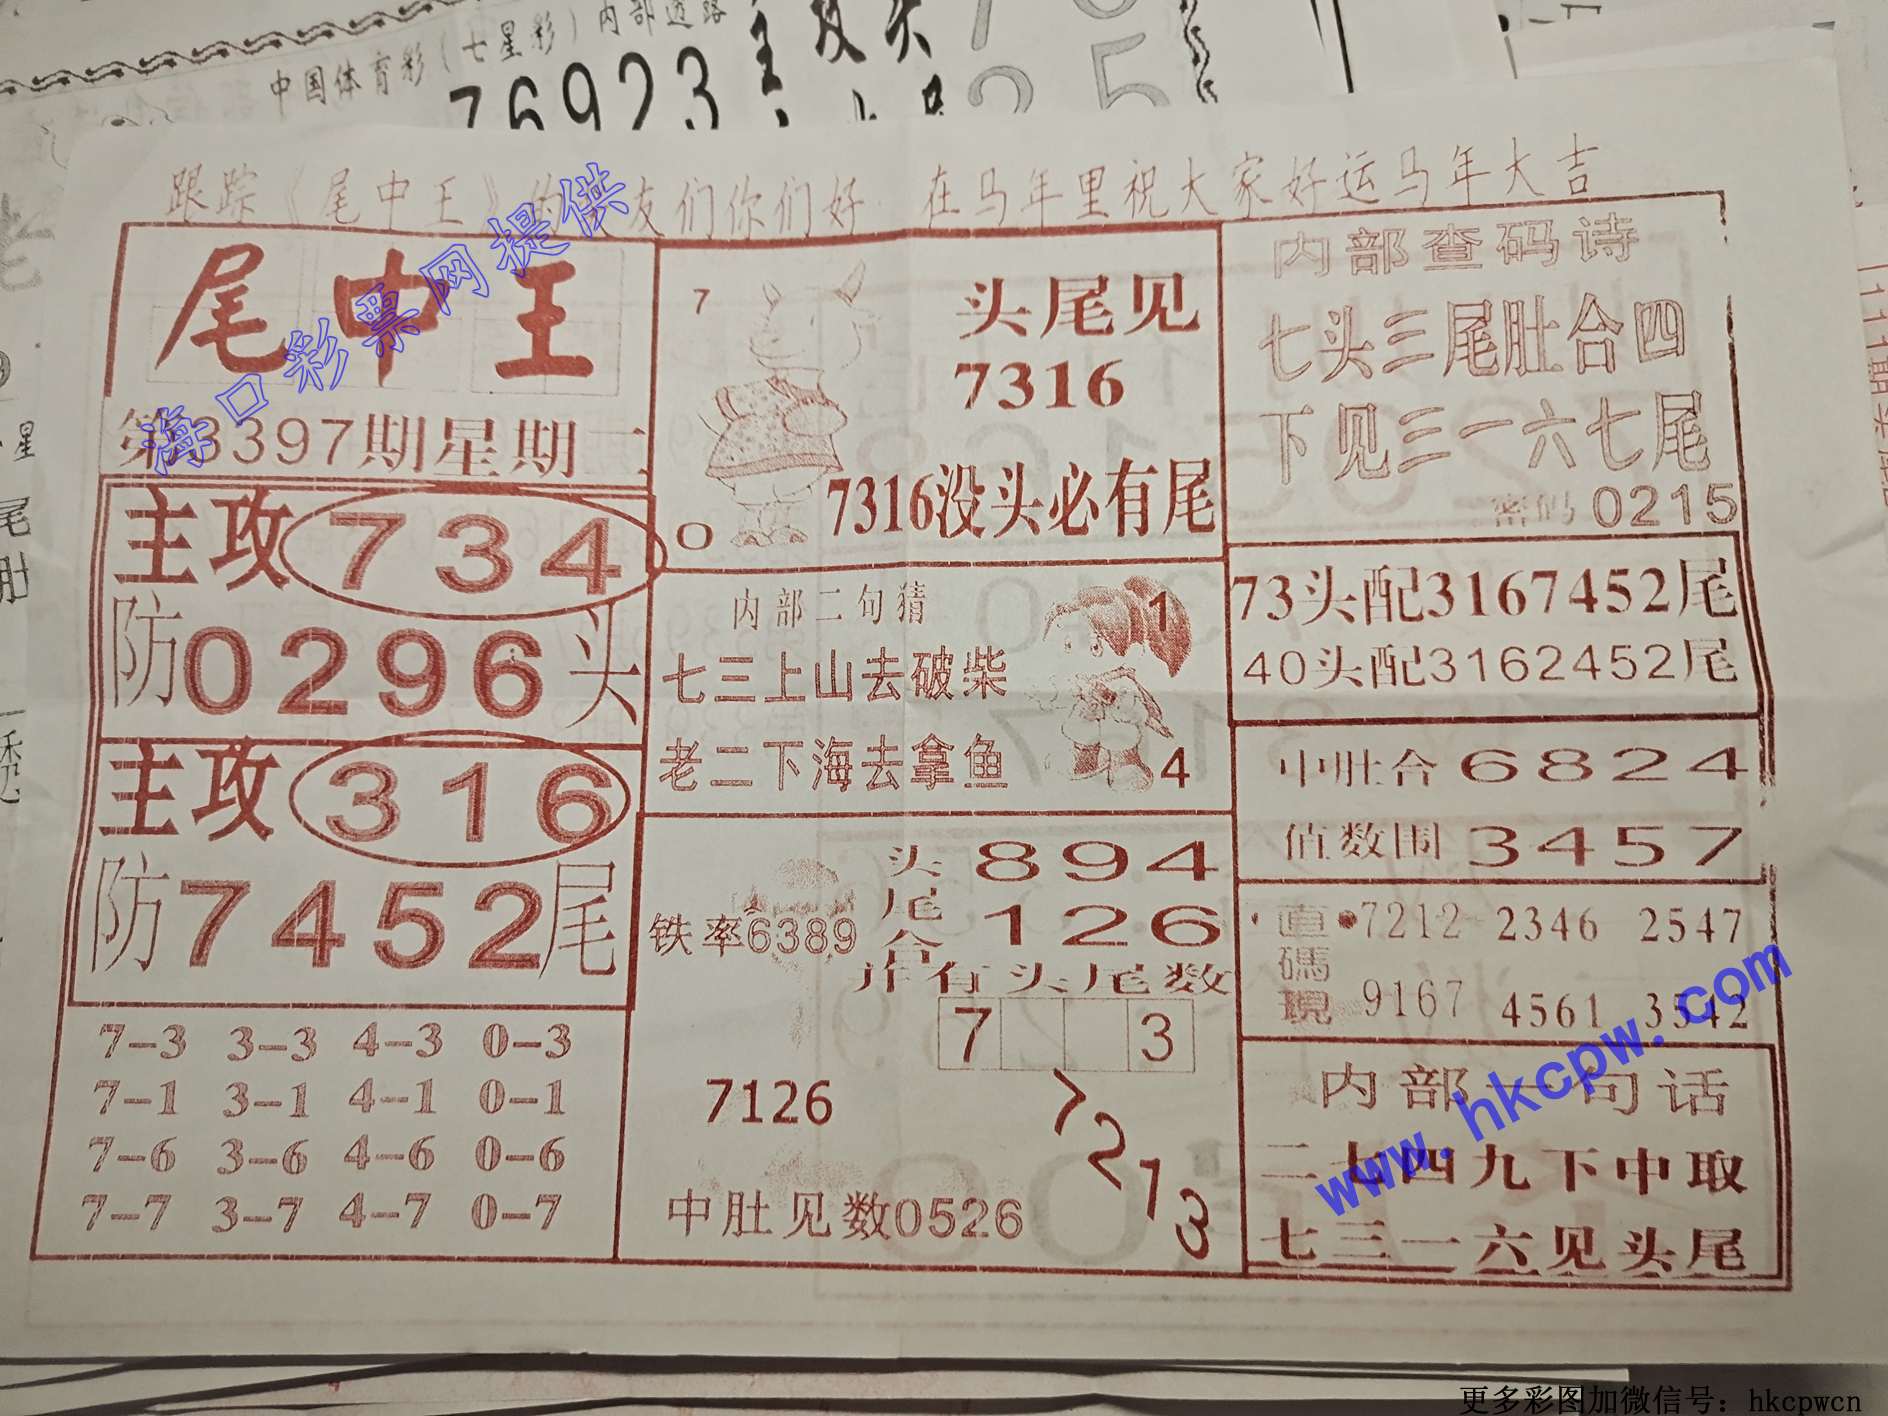 中国体育彩(七星彩)内部透路
76923
跟踪《尾中王》的 友们你们好 在马年里祝大家好运马年大吉
海口彩票网提供
尾中王
第 3397期星期二
主攻734
防0296头
主攻316
防7452尾
7-3 3-3 4-3 0-3
7-1 3-1 4-1 0-1
7-6 3-6 4-6 0-6
7-7 3-7 4-7 0-7
7
0
头尾见
7316
7316没头必有尾
内部二句猜
七三上山去破柴
老二下海去拿鱼
1
4
铁率6389
头 894
尾 126
合
并有头尾数
7 3
7126
7213
中肚见数0526
内部查码诗
七头三尾肚合四
下见三一六七尾
密码 0215
73头配3167452尾
40头配3162452尾
中肚合6824
值数围3457
直碼現
7212 2346 2547
9167 4561 3542
www.hkcpw.com
内部一句话
二七四九下中取
七三一六见头尾
更多彩图加微信号：hkcpwcn